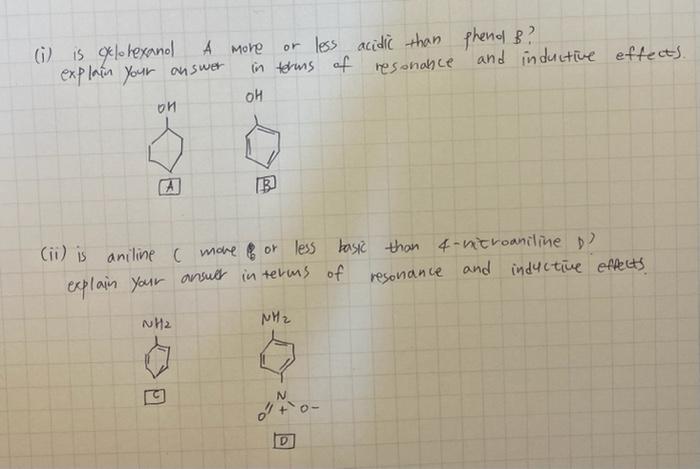 (i) is cyclohexanol A more or less acidic than phenol B?
explain your answer in terms of resonance and inductive effects.
OH
OH
A
B
(ii) is aniline C more or less basic than 4-nitroaniline D?
explain your answer in terms of resonance and inductive effects.
NH2
NH2
C
N
O + O-
D